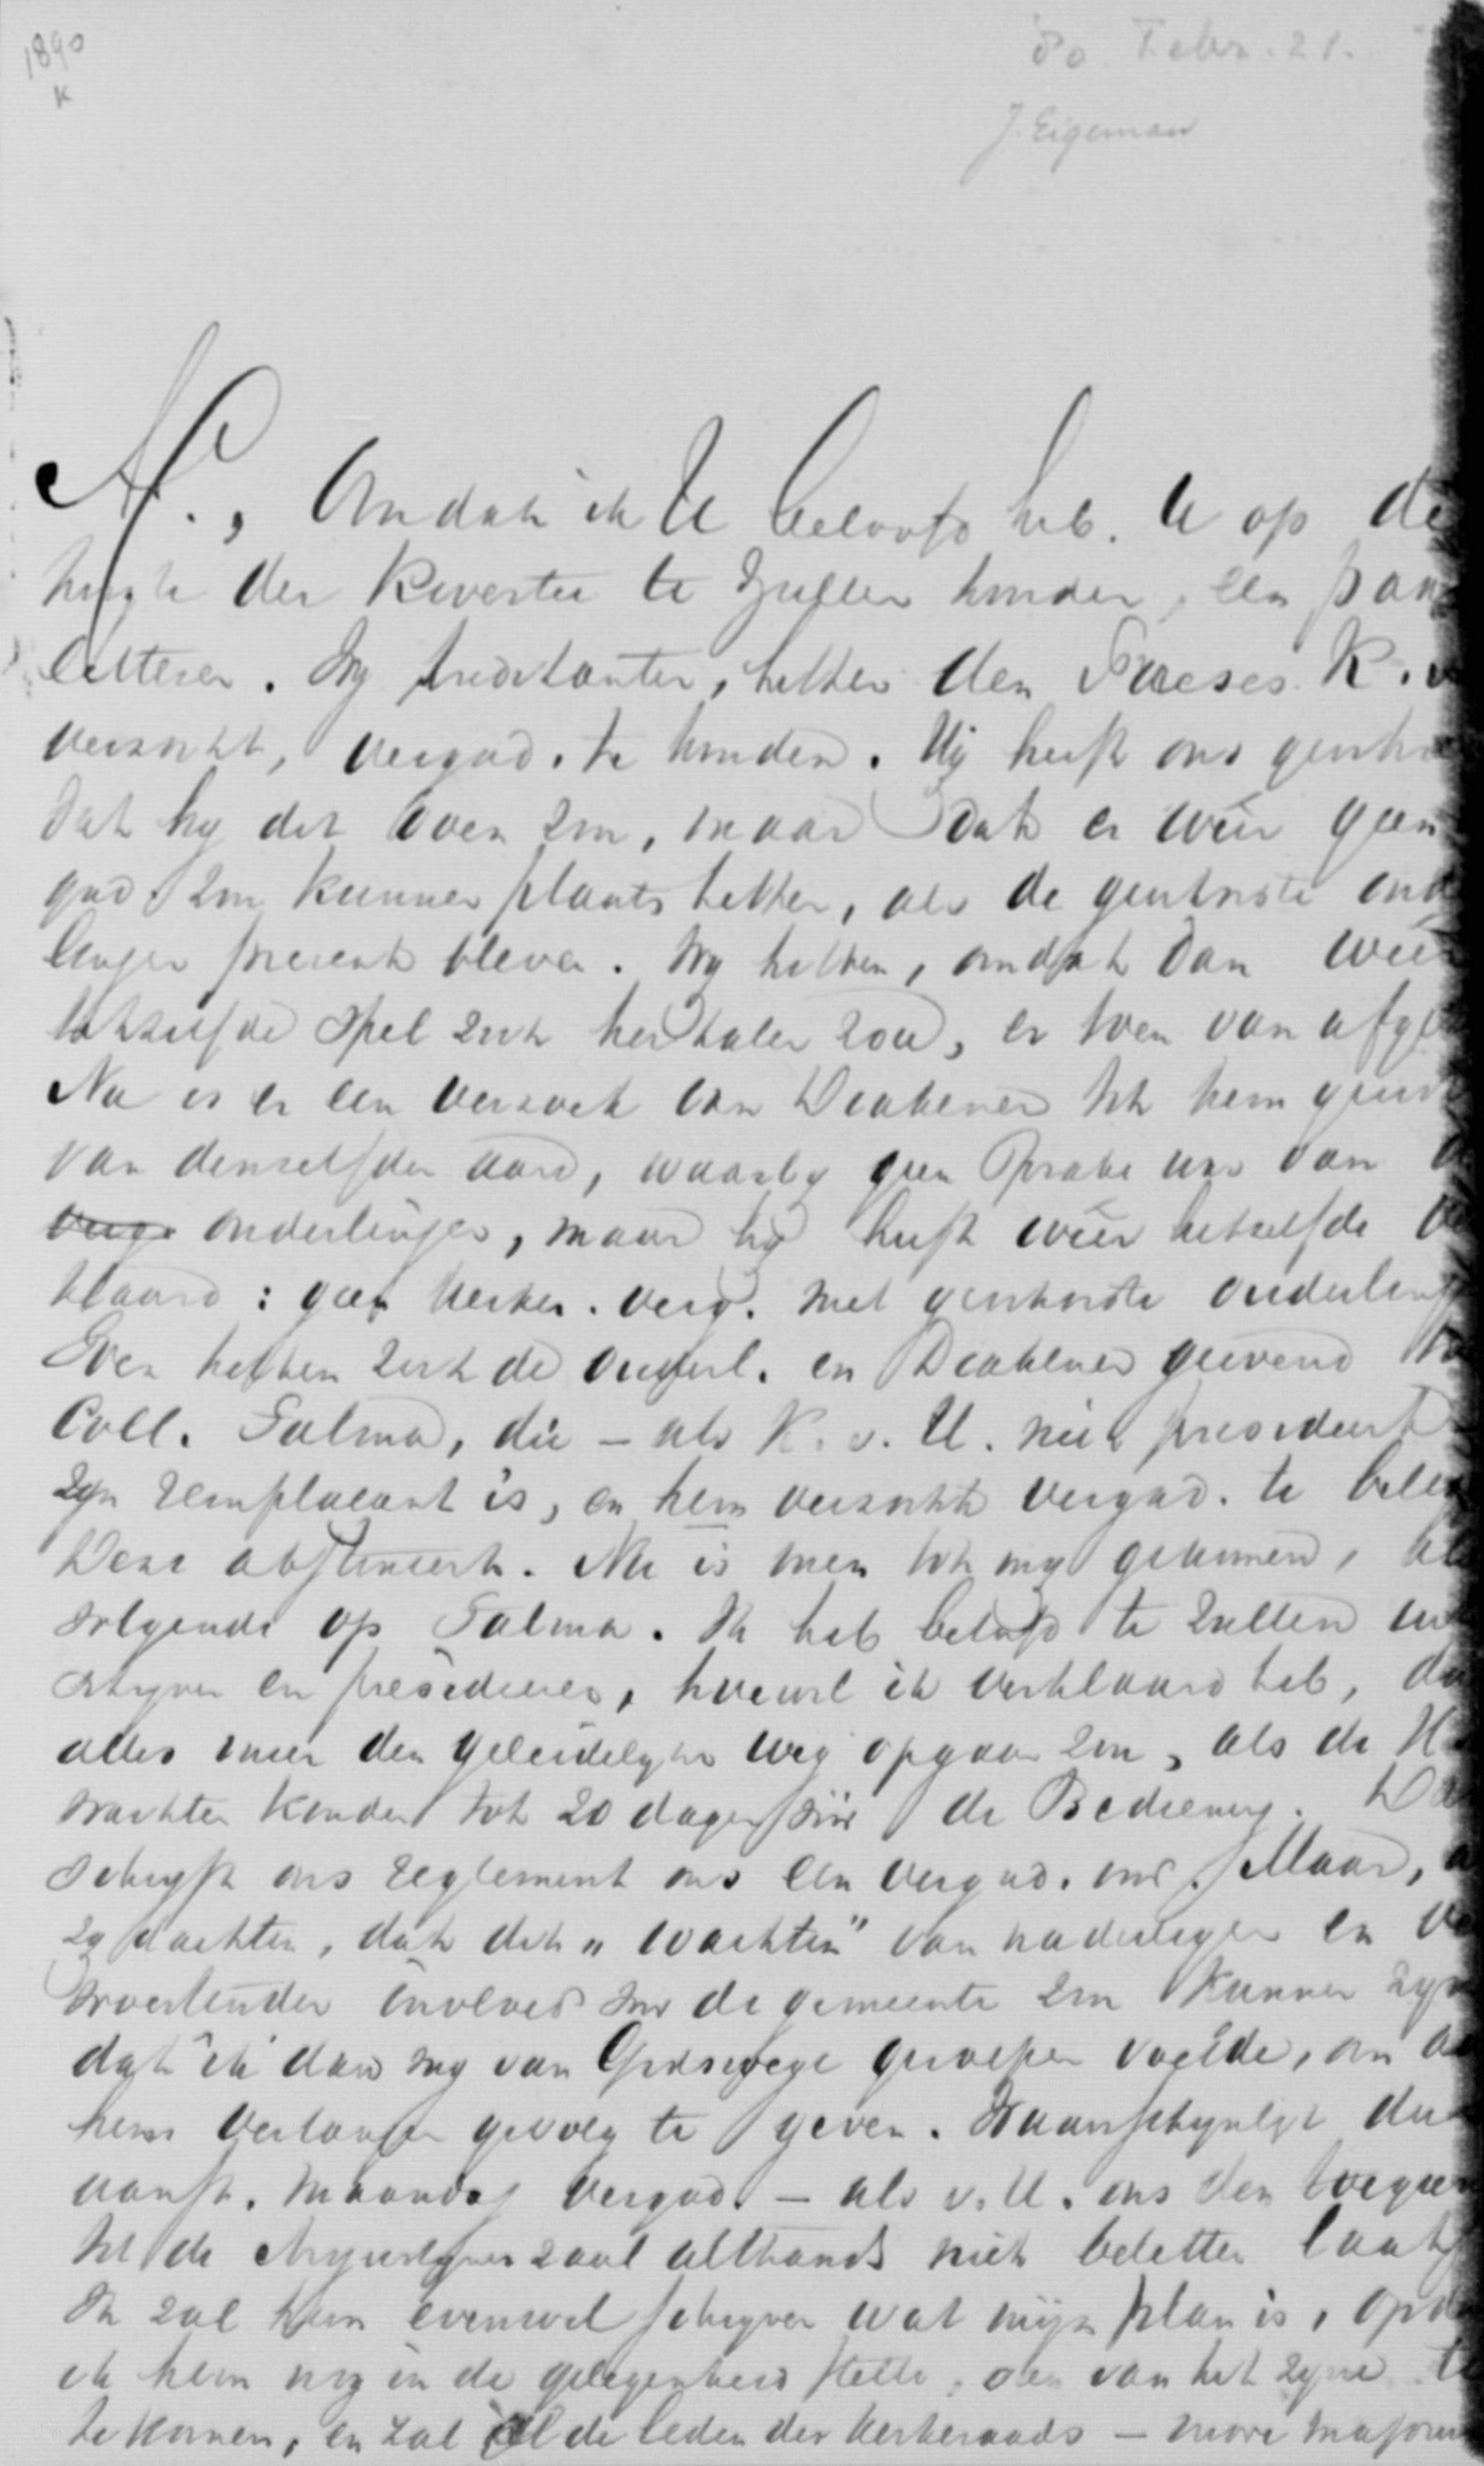 1890
K
80 Febr. 21.
J. Eigeman
A., Omdat ik U beloofd heb. U op de
hoogte der kwestie te zullen houden, een paar
letteren. Wy predikanten, hebben den Praeses K. v
verzocht, vergad. te houden. Hij heeft ons
dat hy dit doen zou, maar dat er weer geen
gad. zou kunnen plaats hebben, als de geschorste
lingen present bleven. Wy hebben, omdat dan weer
hetzelfde spel zich herhalen zou, er toen van
Nu is er een verzoek van Diakenen tot hem
van denzelfden aard, waarby geen sprake was van
onderlingen, maar hy heeft weer hetzelfde
klaard: geen kerker. verg. met geschorste
Toen hebben zich de ouderl. en Diakenen gewend
Coll. Talma, die – als K. v. U. niet presideert
zyn remplacant is, en hem verzocht vergad. te
Deze abstineert. Nu is men tot my gekomen, als
volgende op Talma. Ik heb beloofd te zullen
schryven en presideeren, hoewel ik verklaard heb,
alles meer den geleidelyken weg opgaan zou, als de
wachten konden tot 20 dagen vóór de Bediening.
schryft ons reglement ons een vergad. voor. Maar,
zy dachten, dat dit „wachten" van nadeeligen en
invloed voor de gemeente zou kunnen
dat ik dan my van Godswege geroepen voelde, om
hun verlangen gevolg te geven. Waarschynlyk
aanst. Maandag vergad. – als v. U. ons den
tot de zaal althands niet beletten laat
Ik zal hem evenwel schryven wat mijn plan is,
ik hem nog in de gelegenheid stelle, om van het zyne
te komen, en zal al de leden des kerkeraads – more